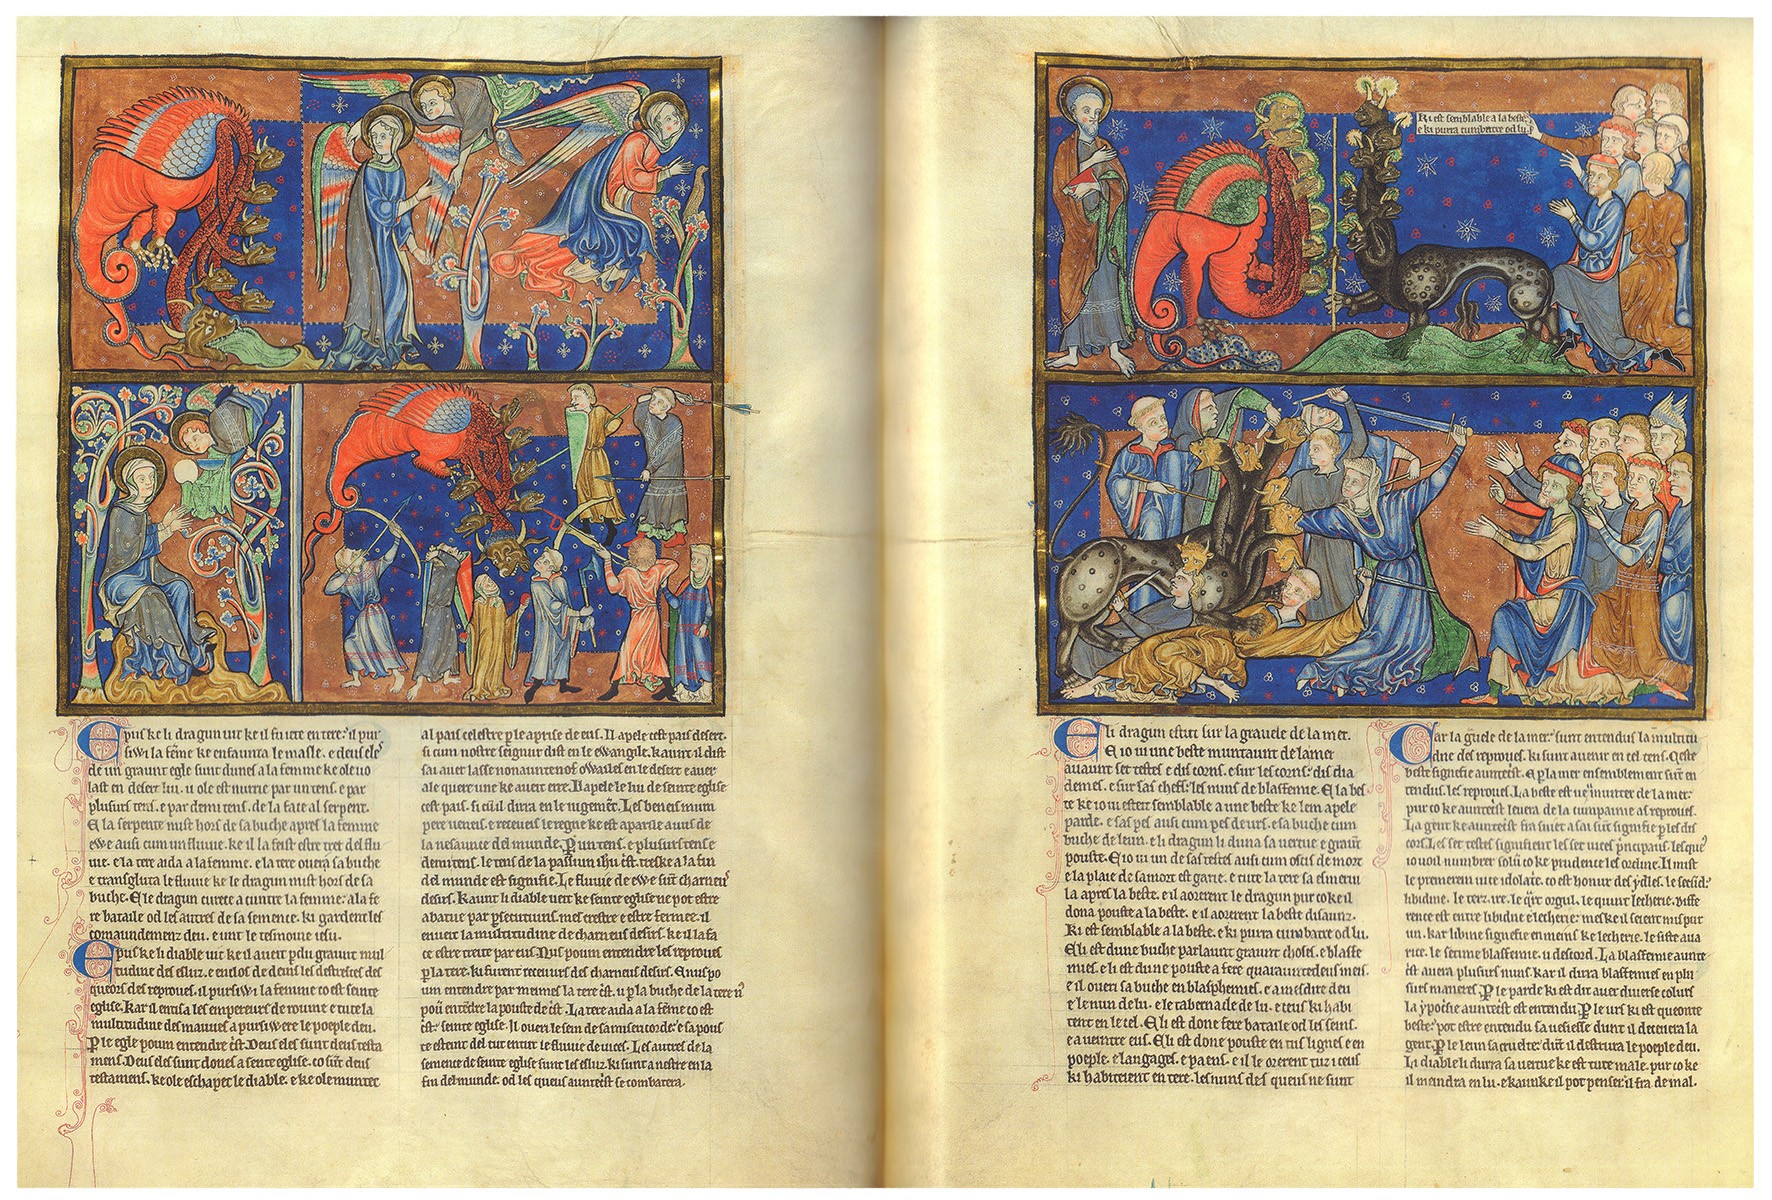 Epuis ke li dragun uit ke il fu iete en tere: il pur
siwi la feme ke enfaunta le masle. e deus eles
de un graunt egle sunt dunes a la femme ke ele uo
last en desert liu. u ele est nurrie par un tens. e par
plusurs tens. e par demi tens. de la face al serpent.
E la serpente mist hors de sa buche apres la femme
ewe ausi cum un fluuie. ke il la feist estre tret del flu
uie. e la tere aida a la femme. e la tere oueri sa buche
e transgluta le fluuie ke le dragun mist hors de sa
buche. E le dragun curece a cuntre la femme: ala fe
re bataile od les autres de sa semence. ki gardent les
comaundemenz deu. e unt le tesmoine iesu.
Epuis ke li diable uit ke il aueit pdu graunt mul
titudine des esluz. e enclos de denz les destreites des
queors des repruues. il pursiwi la femme co est seinte
eglise. Kar il entisa les empereurs de rome e tute la
multitudine des mauues a pursiwere le poeple deu.
P le egle poum entendre crist. Deus eles sunt deus testa
mens. Deus eles sunt dones a seinte eglise. co sunt deus
testamens. ke ele eschapet le diable. e ke ele muntet
al pais celestre p le aprise de eus. Il apele cest pais desert.
si cum nostre seignur dist en le ewangile. kaunt il dist
sai auer lasse nonaunte nof owailes en le desert e auer
ale quere une ke aueit erre. Il apele le liu de seinte eglise
cest pais. si cum il dirra en le iugement. Les beneis mum
pere uenes. e receueis le regne ke est aparile a uus de
la nesaunce del mund. P un tens. e plusurs tens e
demi tens. le tens de la passiun ihu crist. treske a la fin
del munde est signifie. Le fluuie de ewe sunt charneus
desirs. Kaunt li diable ueit ke seinte eglise ne pot estre
abatue par psecutiuns. mes crestre e estre fermee. il
enueit la multitudine de charneus desirs. ke il la fa
ce estre treite par eus. Nus poum entendre les repruues
p la tere. ki furent receuurs des charneus desirs. E nus po
um entendre par meimes la tere crist. u p la buche de la tere nus
poum entendre la pouste de crist. La tere aida a la feme co est
crist. seinte eglise. Il oueri le sein de sa misericorde. e sa pous
te esteint del tut entur le fluuie de uices. Les autres de la
semence de seinte eglise sunt les esluz. ki sunt a nestre en la
fin del munde. od les queus auntecrist se combatera.
Ki est semblable a la beste.
e ki purra cumbatre od lui.
E li dragun estiut sur la grauele de la mer.
E io ui une beste muntaunt de la mer
auaunt set testes e dis corns. e sur les corns: dis dia
demes. e sur sas chefs: les nuns de blasfemie. E la bes
te ke io ui esteit semblable a une beste ke lem apele
parde. e sas pes ausi cum pes de urs. e sa buche cum
buche de leun. e li dragun li duna sa uertue e graunt
pouste. E io ui un de sas testes ausi cum oscis de mort
e la plaie de sa mort est garie. e tute la tere se esmerui
la apres la beste. e il aorerent le dragun pur co ke il
dona pouste a la beste. e il aorerent la beste disaunz.
Ki est semblable a la beste. e ki purra cumbatre od lui.
E li est dune buche parlaunt graunt choses. e blasfe
mies. e li est dune pouste a fere quaraunte deus meis.
e il oueri sa buche en blasphemies. e a mesdire deu
e le nun de lui. e le tabernacle de lui. e ceus ki habi
tent en le cel. E li est done fere bataile od les seins.
e a ueintre eus. E li est done pouste en tus lignes e en
poeple. e langages. e paens. e il le aorerent tuz iceus
ki habiteient en tere. les nuns des queus ne sunt
Par la grauele de la mer: sunt entendus la multitu
dine des repruues. ki sunt auenir en cel tens. Ceste
beste signefie auntecrist. E p la mer ensemblement sunt en
tendus. les repruues. La beste est ueu munter de la mer:
pur co ke auntecrist leuera de la cumpainie as repruues.
La gent ke auntecrist fra suiet a sai sunt signifie p les dis
corns. Les set testes signifient les set uices principaus. les queus
io uoil numbrer solum co ke prudence les ordine. Il mist
le premerem uice idolatrie. co est honur des ydles. le secund:
libidine. le terz. ire. le quart orgul. le quint lecherie. diffe
rence est entre libidine e lecherie: mes ke il seient mis pur
un. kar libine signefie en meins ke lecherie. le siste aua
rice. le setime blasfemie. u descord. La blasfemie auntecri
st auera plusurs nuns. kar il dirra blasfemies en plu
surs maneres. P le parde ki est dit auer diuerse colurs
la ypocrisie auntecrist est entendu. P le urs ki est queonte
beste: pot estre entendu sa uesiesse dunt il deceuera la
gent. P le leun sa cruelte: dunt il destruira le poeple deu.
Li diable li durra sa uertue ke est tute male. pur co ke
il meindra en lui. e kauntke il pot penser il fra de mal.